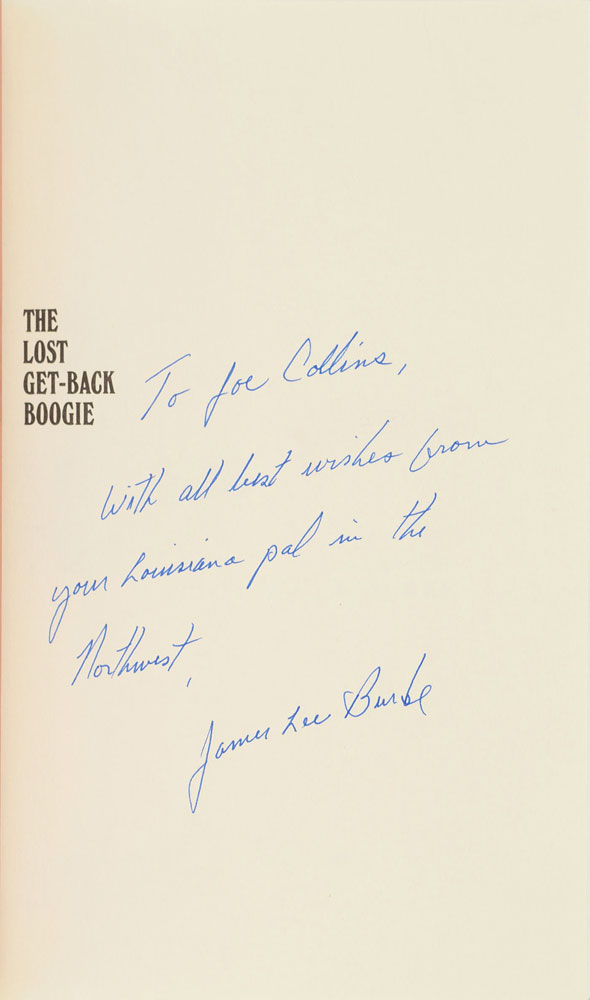 THE
LOST
GET-BACK
BOOGIE
To Joe Collins,
With all best wishes from
your Louisiana pal in the
Northwest,
James Lee Burke